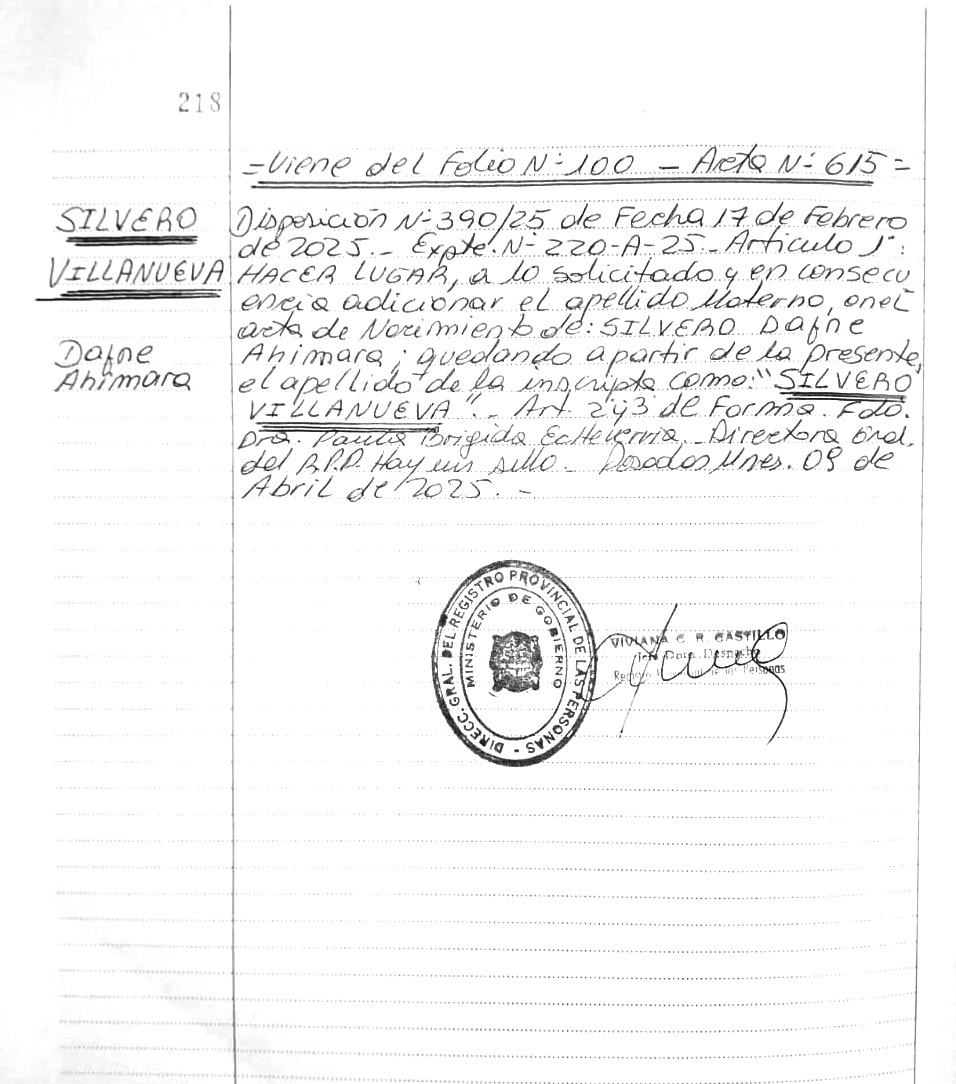 218
=Viene del Folio Nº 100 - Acta Nº 615=
SILVERO
VILLANUEVA
Dafne
Ahimara
Disposición Nº 390/25 de Fecha 17 de Febrero
de 2025.- Expte. Nº 220-A-25.- Articulo 1º:
HACER LUGAR, a lo solicitado y en consecu
encia adicionar el apellido Materno, en el
acta de Nacimiento de: SILVERO Dafne
Ahimara; quedando a partir de la presente,
el apellido de la inscripta como: "SILVERO
VILLANUEVA".- Art. 2y3 de Forma. Fdo.
Dra. Paula Brigida Echeverria. Directora Gral.
del R.P.P. Hay un sello - Posadas Mnes. 09 de
Abril de 2025. -
DIRECC. GRAL. DEL REGISTRO PROVINCIAL DE LAS PERSONAS -
MINISTERIO DE GOBIERNO
VIVIANA C. R. CASTILLO
Despacho
Registro de las Personas